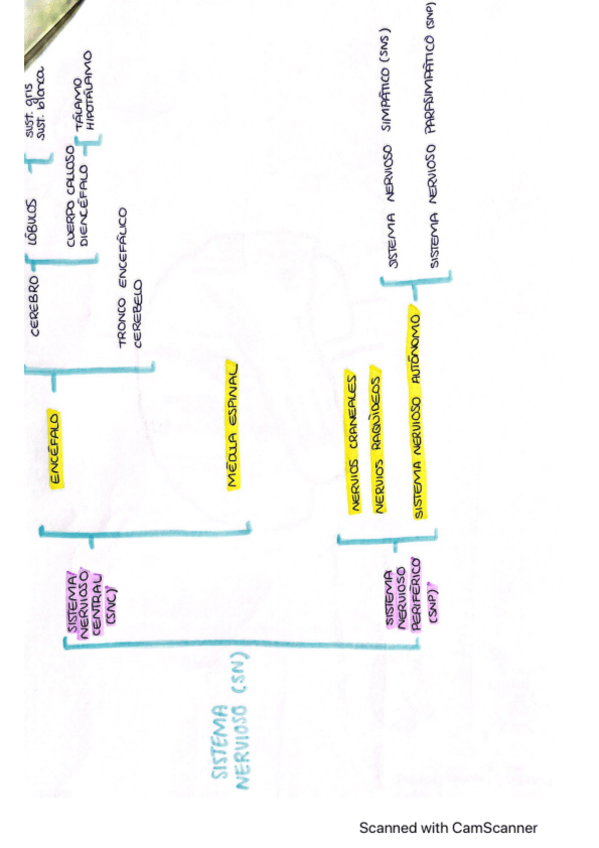 SISTEMA
NERVIOSO (SN)
SISTEMA
NERVIOSO
CENTRAL
(SNC)
ENCÉFALO
CEREBRO
LÓBULOS
sust. gris
sust. blanca
CUERPO CALLOSO
DIENCÉFALO
TÁLAMO
HIPOTÁLAMO
TRONCO ENCEFÁLICO
CEREBELO
MÉDULA ESPINAL
SISTEMA
NERVIOSO
PERIFÉRICO
(SNP)
NERVIOS CRANEALES
NERVIOS RAQUÍDEOS
SISTEMA NERVIOSO AUTÓNOMO
SISTEMA NERVIOSO SIMPÁTICO (SNS)
SISTEMA NERVIOSO PARASIMPÁTICO (SNP)
Scanned with CamScanner